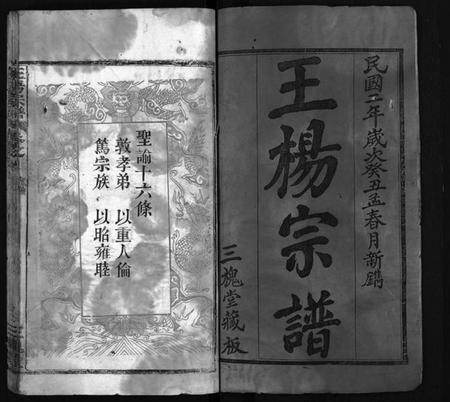 民國二年歲次癸丑孟春月新鐫
王楊宗譜
三槐堂藏板
聖諭十六條
敦孝弟 以重人倫
篤宗族 以昭雍睦